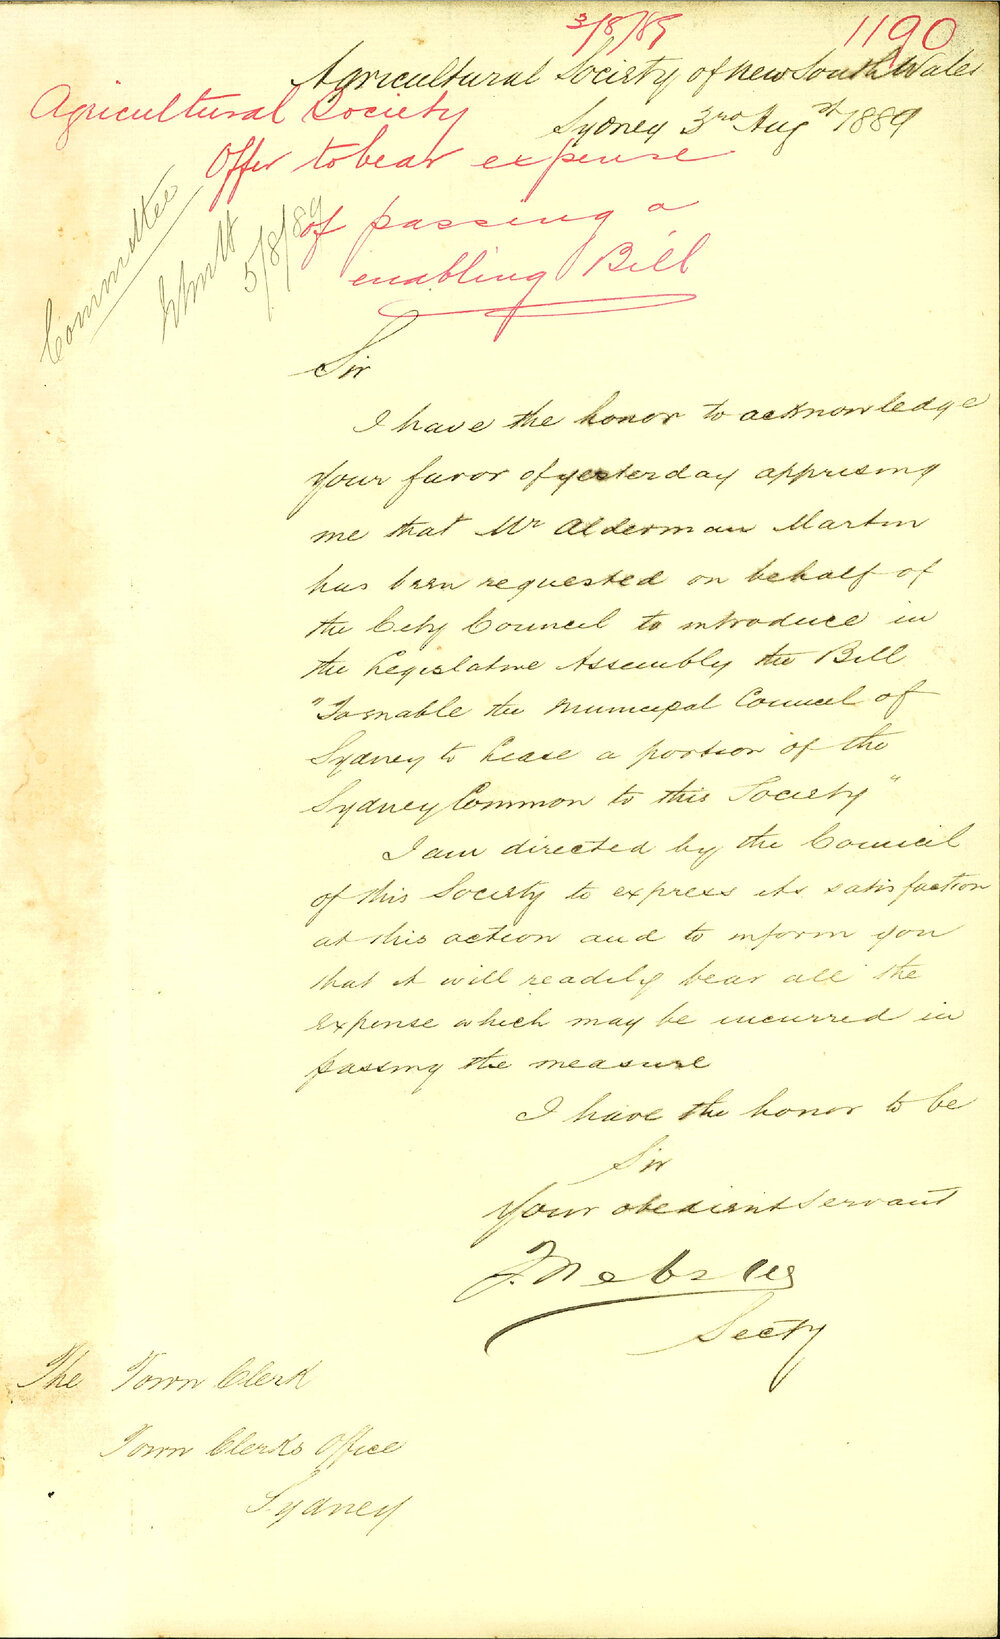 3/8/89
1190
Agricultural Society of New South Wales
Sydney 3rd Augst 1889
Agricultural Society
Offer to bear expense
of passing a
enabling Bill
Committee
5/8/89
Sir
I have the honor to acknowledge
your favor of yesterday apprising
me that Mr Alderman Martin
has been requested on behalf of
the City Council to introduce in
the Legislative Assembly the Bill
"To enable the Municipal Council of
Sydney to lease a portion of the
Sydney Common to this Society"
I am directed by the Council
of this Society to express its satisfaction
at this action and to inform you
that it will readily bear all the
expense which may be incurred in
passing the measure
I have the honor to be
Sir
Your obedient Servant
F. Webster
Secty
The Town Clerk
Town Clerks Office
Sydney